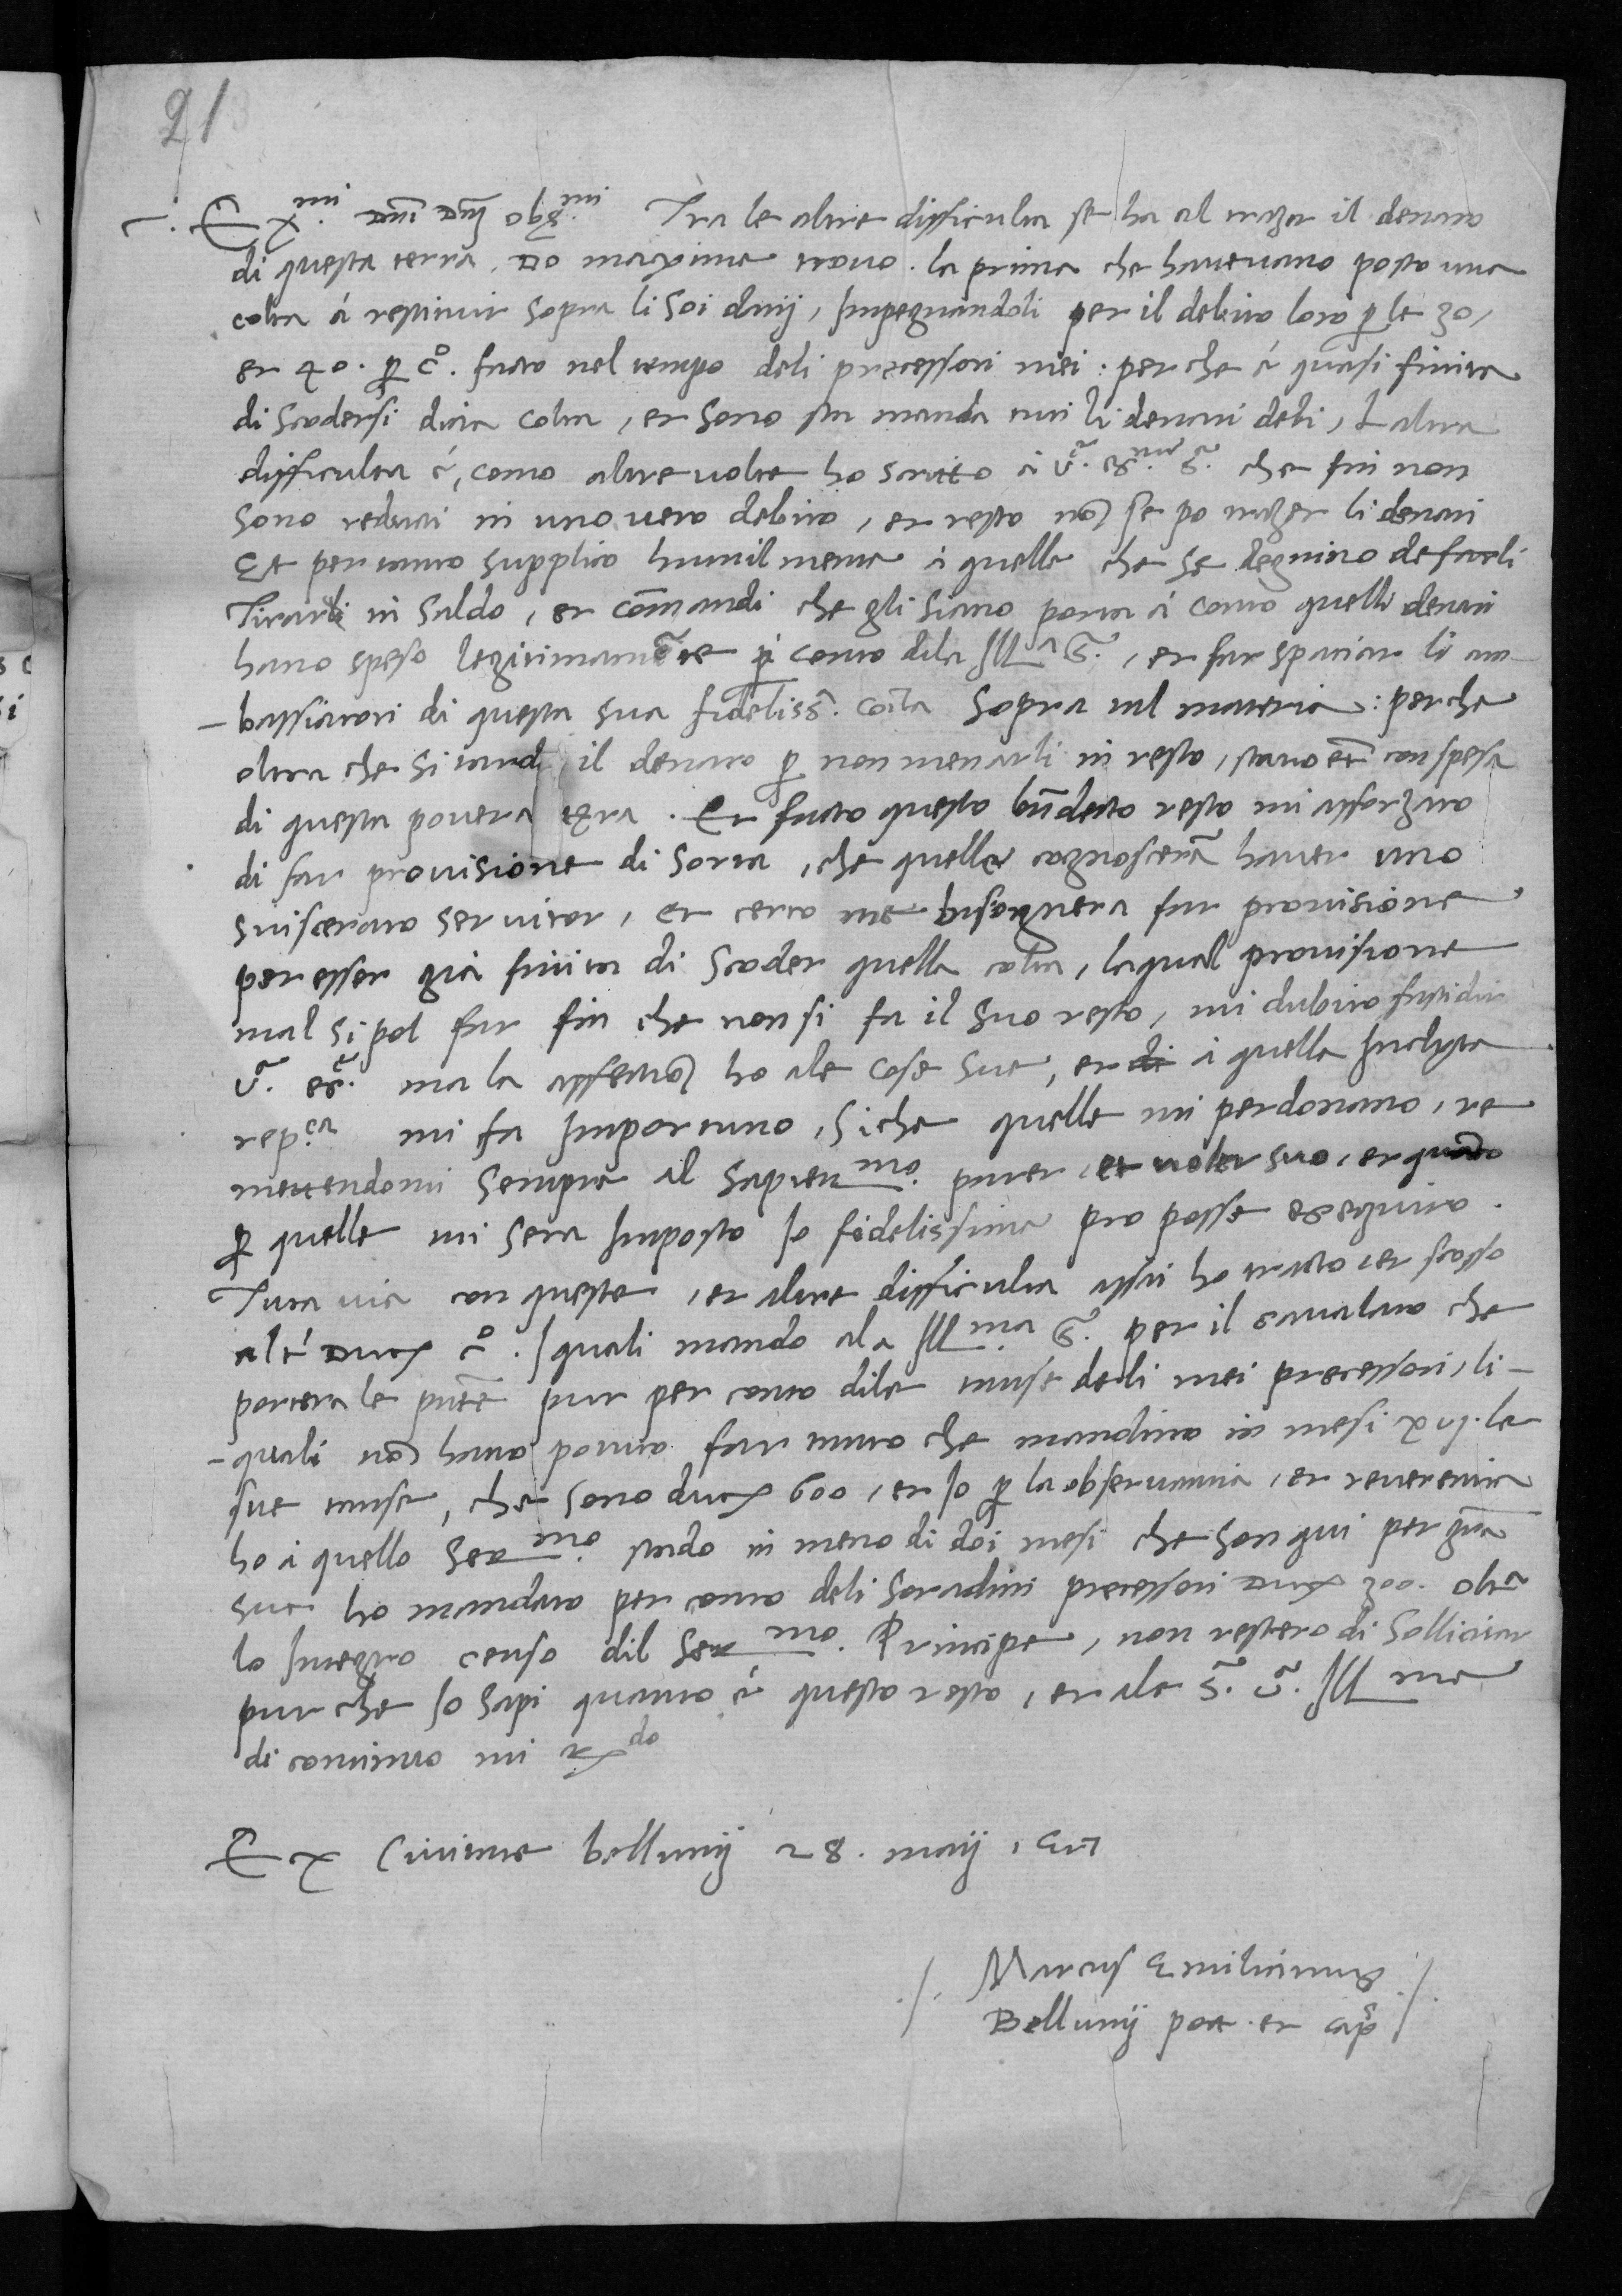 21
Ex.mi dni dni obs.mi Tra le altre difficulta se ha al trazer il denaro
di questa terra, do maxime trovo. la prima che havevano posto una
colta á restituir sopra li soi dnij, Impegnandoli per il debito loro p le 30,
et 40. p cº. facto nel tempo deli precessori mei: perche é quasi finita
di scodersi dicta colta, et sono sta manda tuti li denari deli, L altra
difficulta é, como altre volte ho scritto á v. S. che fin non
sono reducti in uno vero debito, et resto nõ se po trazer li denari
Et per tanto supplico humilmente á quelle che se degnino de farli
Tirarli in saldo, et cõmandi che gli siano porta á conto quelli denari
hano speso legitimamẽte p conto dila Ill.a S., et far spaciar li am-
-bassiatori di questa sua fideliss. coita sopra tal materia: perche
oltra che si tarda il denaro p non menarli in resto, stano et con spesa
di questa povera terra. Et facto questo bñdecto resto mi sforzaro
di far provisione di sorta, che quelle cognoscerã haver uno
sviscerato servitor, et certo me bisognera far provisione
per esser gia finita di scoder quella colta, laqual provisione
mal si pol far fin che non si fa il suo resto, mi dubito fastidir
v. ma la affectiõ ho ale cose sue, et di á quella Inclyta
rep.ca mi fa Importuno, siche quelle mi perdonano, re
mettendomi sempre al sapien.mo parer, et voler suo, et quãto
p quelle mi sera Imposto Io fidelissime pro posse exequiro.
Tuta via con queste, et altre difficulta assai ho tracto, et scosso
altri duc. cº. Iquali mando ala Ill.ma S. per il cavalaro che
portera le pnte pur per conto dile tanse deli mei precessori, li-
-quali nõ hano potuto far tanto che mandino in mesi xvj. le
sue tanse, che sono duc. 600, et Io p la observantia, et reverentia
ho á quello Ser.mo stado in meno di doi mesi che son qui per grã
sua ho mandato per conto deli soradini precessori duc. 300. oltra
lo Integro censo dil Ser.mo Principe, non restero di sollicitar
pur che Io sapi quanto é questo resto, et ale S. v. Ill.me
di continuo mi rdo
Ex Civitate bellunij 28. maij 1517
Marcus Emilianus
Bellunij pot. et cap.s